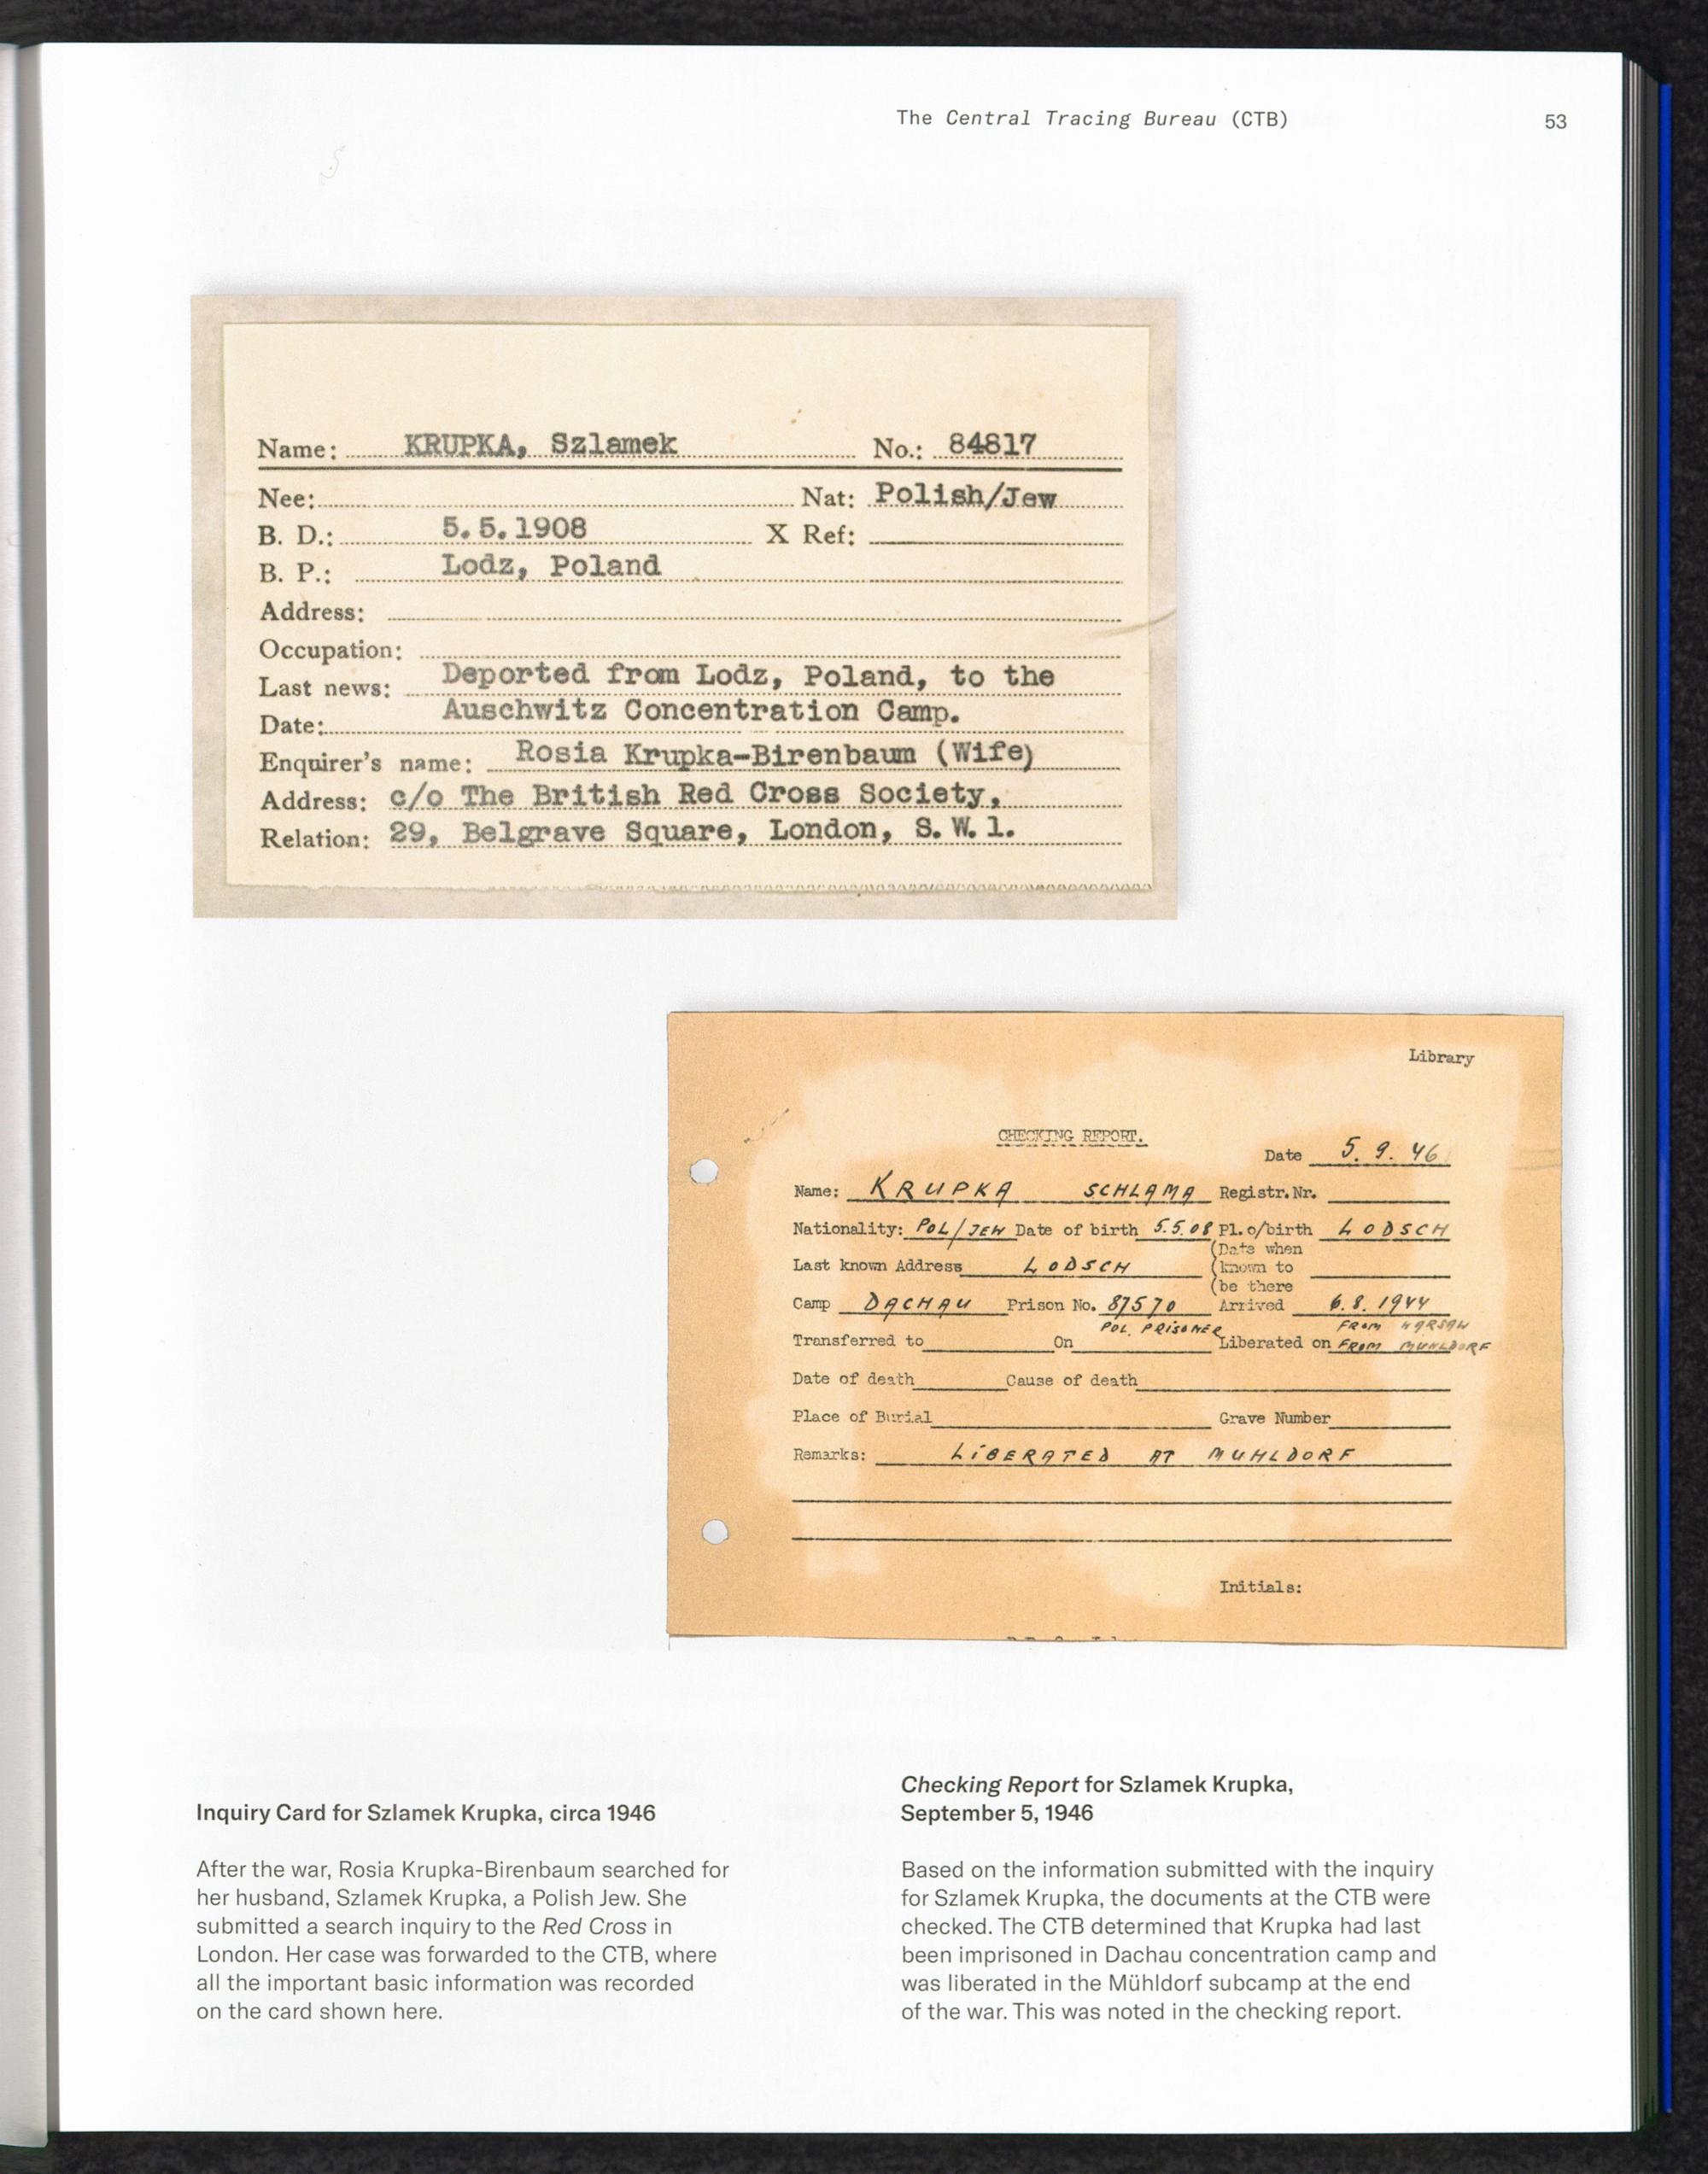 The Central Tracing Bureau (CTB)
53
Name: KRUPKA, Szlamek No.: 84817
Nee: Nat: Polish/Jew
B. D.: 5.5.1908 X Ref:
B. P.: Lodz, Poland
Address:
Occupation:
Last news: Deported from Lodz, Poland, to the
Date: Auschwitz Concentration Camp.
Enquirer's name: Rosia Krupka-Birenbaum (Wife)
Address: c/o The British Red Cross Society,
Relation: 29, Belgrave Square, London, S.W.1.
Library
CHECKING REPORT.
Date 5.9.46
Name: KRUPKA SCHLAMA Registr.Nr.
Nationality: POL/JEW Date of birth 5.5.08 Pl.o/birth LODSCH
(Date when
Last known Address LODSCH (known to
(be there
Camp DACHAU Prison No. 87570 Arrived 6.8.1944
POL. PRISONER FROM WARSAW
Transferred to On Liberated on FROM MUHLDORF
Date of death Cause of death
Place of Burial Grave Number
Remarks: LIBERATED AT MUHLDORF
Initials:
Inquiry Card for Szlamek Krupka, circa 1946
After the war, Rosia Krupka-Birenbaum searched for
her husband, Szlamek Krupka, a Polish Jew. She
submitted a search inquiry to the Red Cross in
London. Her case was forwarded to the CTB, where
all the important basic information was recorded
on the card shown here.
Checking Report for Szlamek Krupka,
September 5, 1946
Based on the information submitted with the inquiry
for Szlamek Krupka, the documents at the CTB were
checked. The CTB determined that Krupka had last
been imprisoned in Dachau concentration camp and
was liberated in the Mühldorf subcamp at the end
of the war. This was noted in the checking report.